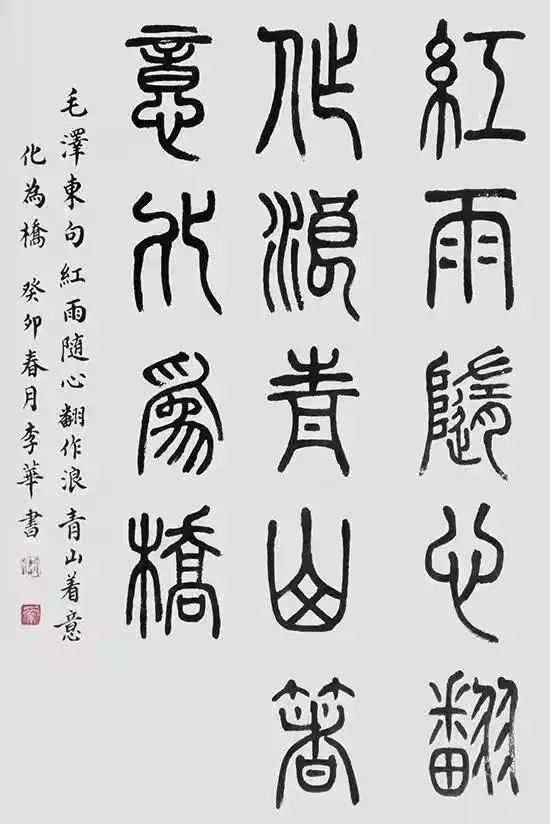 紅雨隨心翻
作浪青山著
意化為橋
毛澤東句紅雨随心翻作浪青山着意
化為橋癸卯春月李華書